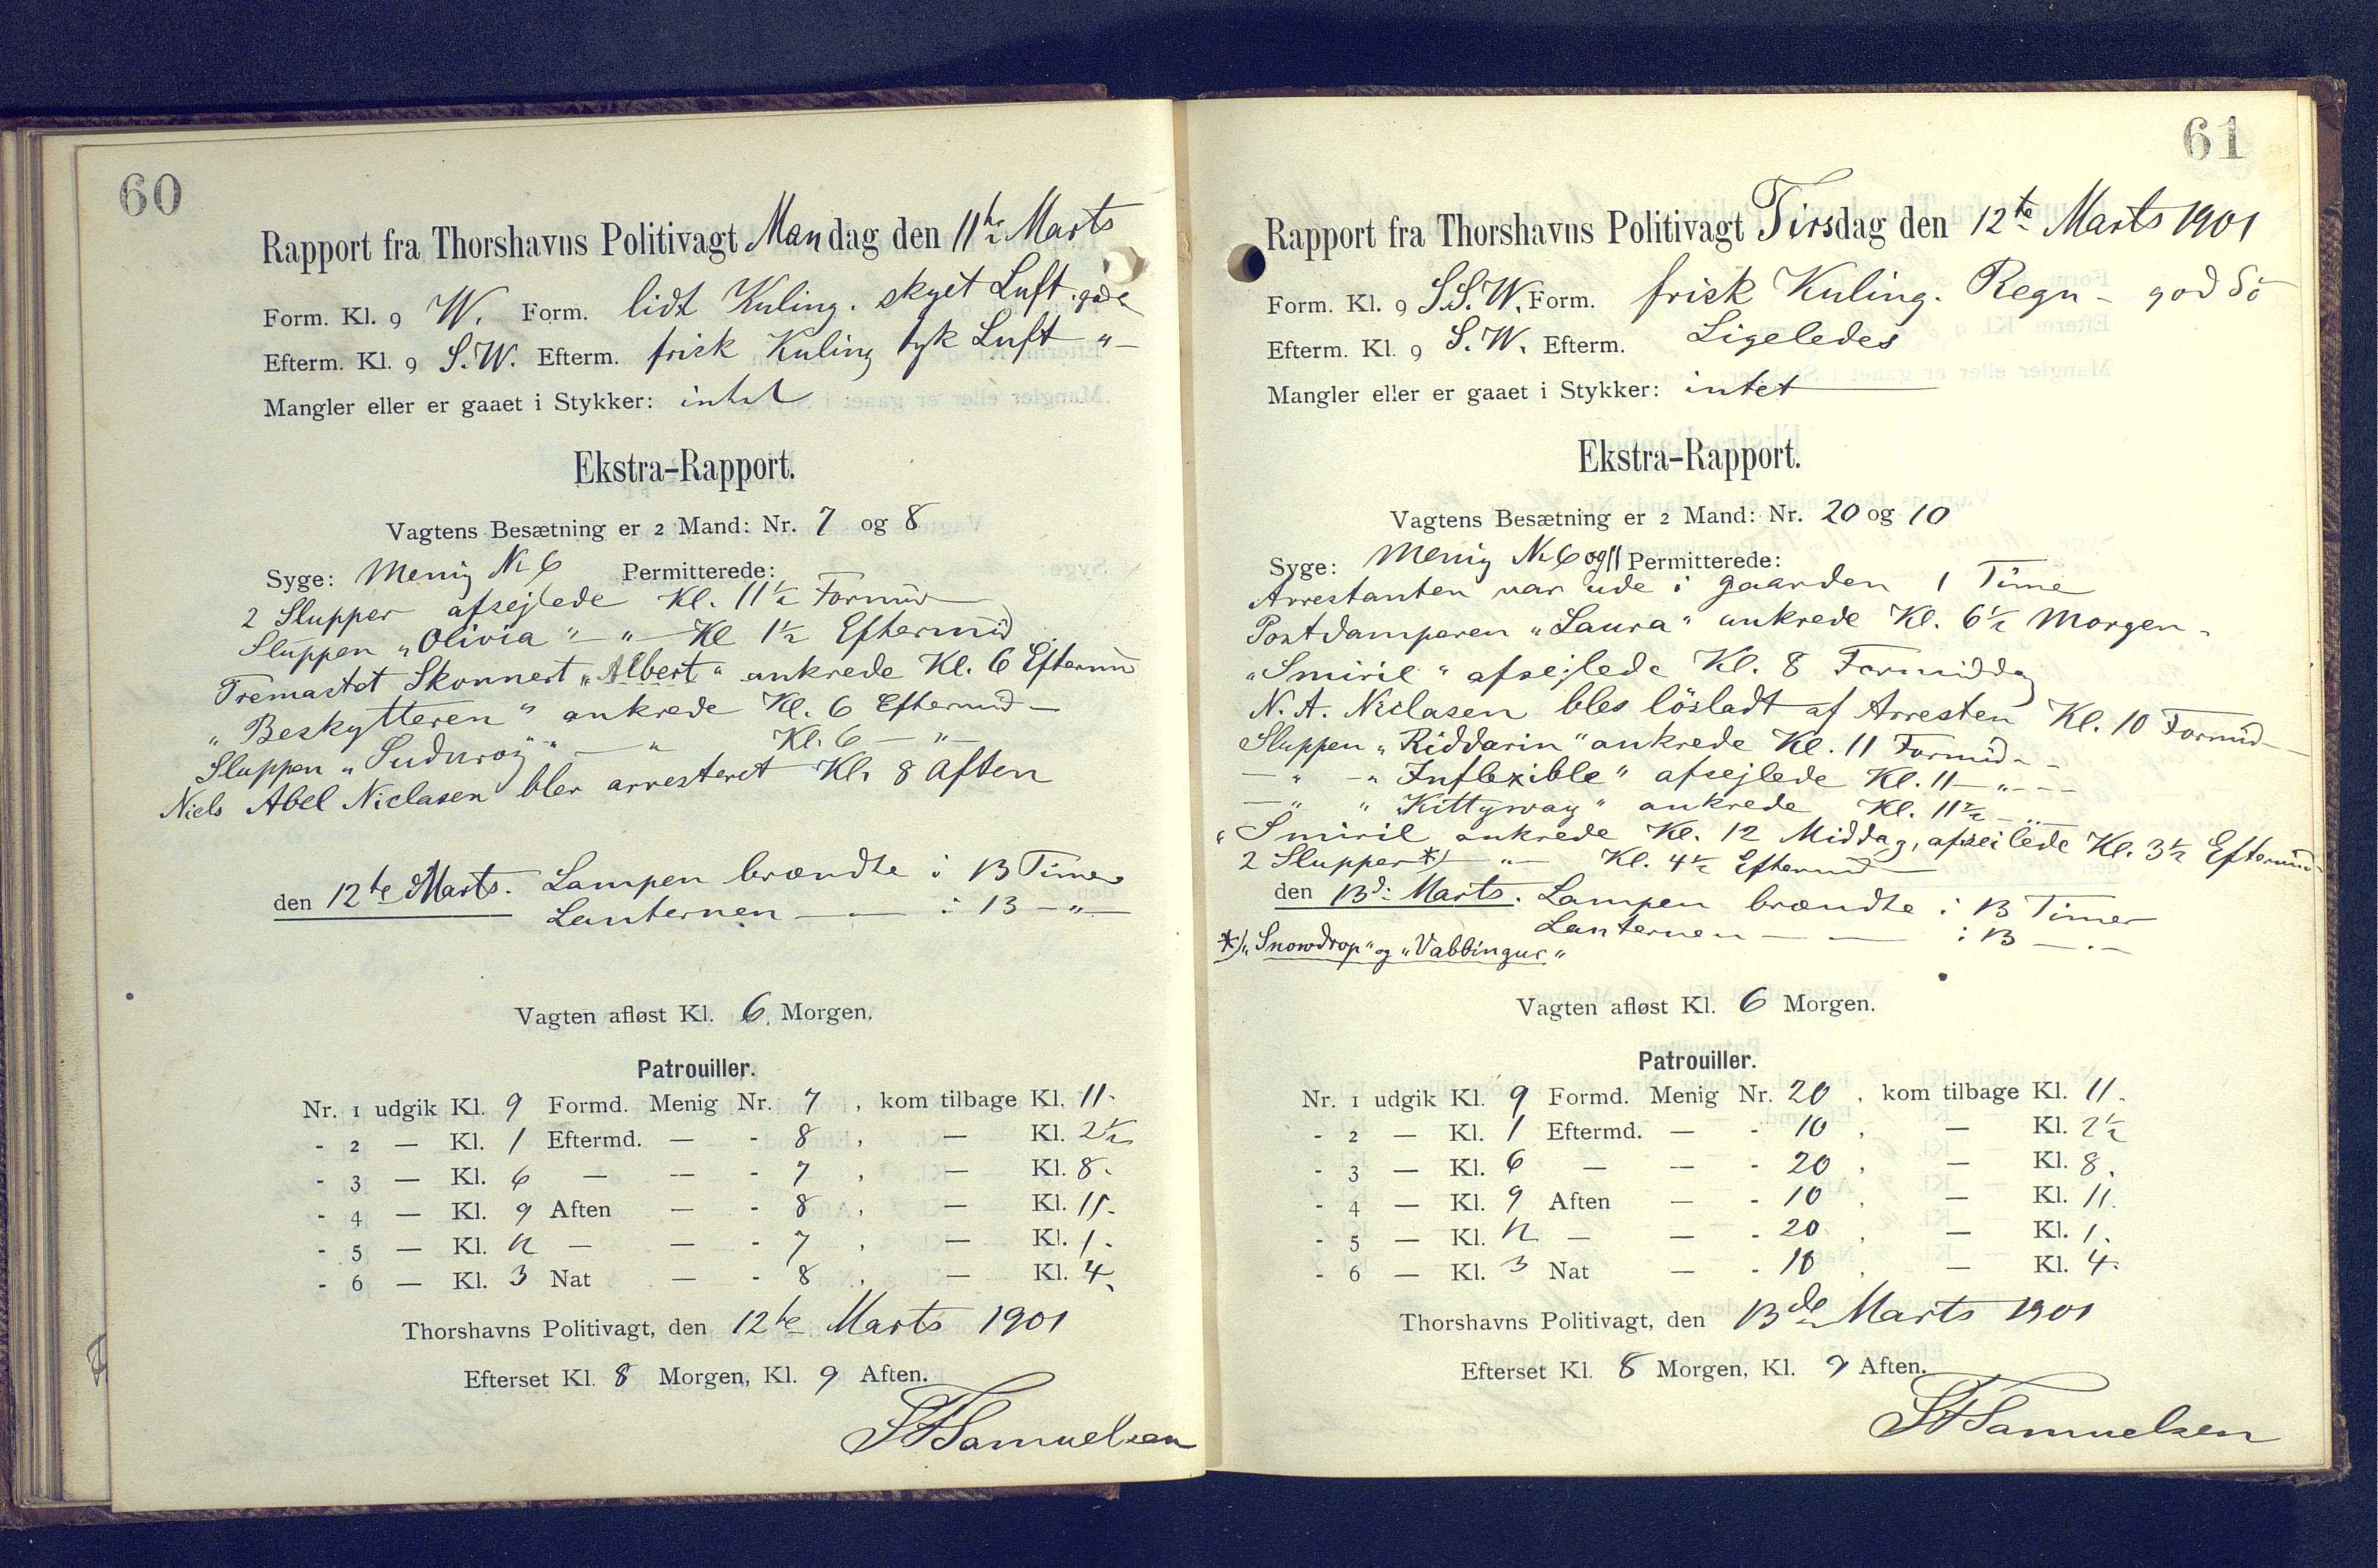 60
Rapport fra Thorshavns Politivagt Mandag den 11te Marts
Form. Kl. 9 W. Form. lidt Kuling. skyet Luft. gode
Efterm. Kl. 9 S.W. Efterm. frisk Kuling tyk Luft "-
Mangler eller er gaaet i Stykker: intet
Ekstra-Rapport.
Vagtens Besætning er 2 Mand: Nr. 7 og 8
Syge: Menig Nr 6 Permitterede:
2 Slupper afsejlede Kl. 11½ Formid
Sluppen „Olivia" - " - Kl 1½ Eftermid
Tremastet Skonnert „Albert" ankrede Kl. 6 Efterm
„Beskytteren" ankrede Kl. 6 Eftermid -
Sluppen „Suduroy" - " Kl. 6 - " -
Niels Abel Niclasen blev arresteret Kl. 8 Aften
den 12te Marts. Lampen brændte i 13 Timer
Lanternen - - i 13 - " -
Vagten afløst Kl. 6. Morgen.
Patrouiller.
Nr. 1 udgik Kl. 9 Formd. Menig Nr. 7, kom tilbage Kl. 11.
- 2 — Kl. 1 Eftermd. — - 8, — Kl. 2½
- 3 — Kl. 6 — — - 7, — Kl. 8.
- 4 — Kl. 9 Aften — - 8, — Kl. 11.
- 5 — Kl. 12 — — - 7, — Kl. 1.
- 6 — Kl. 3 Nat — - 8, — Kl. 4.
Thorshavns Politivagt, den 12te Marts 1901
Efterset Kl. 8 Morgen, Kl. 9 Aften.
Samuelsen
61
Rapport fra Thorshavns Politivagt Tirsdag den 12te Marts 1901
Form. Kl. 9 S.S.W. Form. frisk Kuling. Regn - god Sö
Efterm. Kl. 9 S.W. Efterm. Ligeledes
Mangler eller er gaaet i Stykker: intet
Ekstra-Rapport.
Vagtens Besætning er 2 Mand: Nr. 20 og 10
Syge: Menig Nr 6 og 11 Permitterede:
Arrestanten var ude i gaarden 1 Time
Postdamperen „Laura" ankrede Kl. 6½ Morgen -
„Smiril" afsejlede Kl. 8 Formiddag
N. A. Niclasen blev lösladt af Arresten Kl. 10 Formid -
Sluppen „Riddarin" ankrede Kl. 11 Formid -
- " - „Inflexible" afsejlede Kl. 11 - " -
- " „Kittyway" ankrede Kl. 11½ - " -
„Smiril ankrede Kl. 12 Middag, afseilede Kl. 3½ Eftermid -
2 Slupper *) - " - Kl. 4½ Eftermid -
den 13d. Marts. Lampen brændte i 13 Timer
Lanternen - - i 13 - " -
*) „Snowdrop" og „Vabbingur"
Vagten afløst Kl. 6 Morgen.
Patrouiller.
Nr. 1 udgik Kl. 9 Formd. Menig Nr. 20, kom tilbage Kl. 11.
- 2 — Kl. 1 Eftermd. — - 10, — Kl. 2½
- 3 — Kl. 6 — — - 20, — Kl. 8.
- 4 — Kl. 9 Aften — - 10, — Kl. 11.
- 5 — Kl. 12 — — - 20, — Kl. 1.
- 6 — Kl. 3 Nat — - 10, — Kl. 4.
Thorshavns Politivagt, den 13de Marts 1901
Efterset Kl. 8 Morgen, Kl. 9 Aften.
Samuelsen